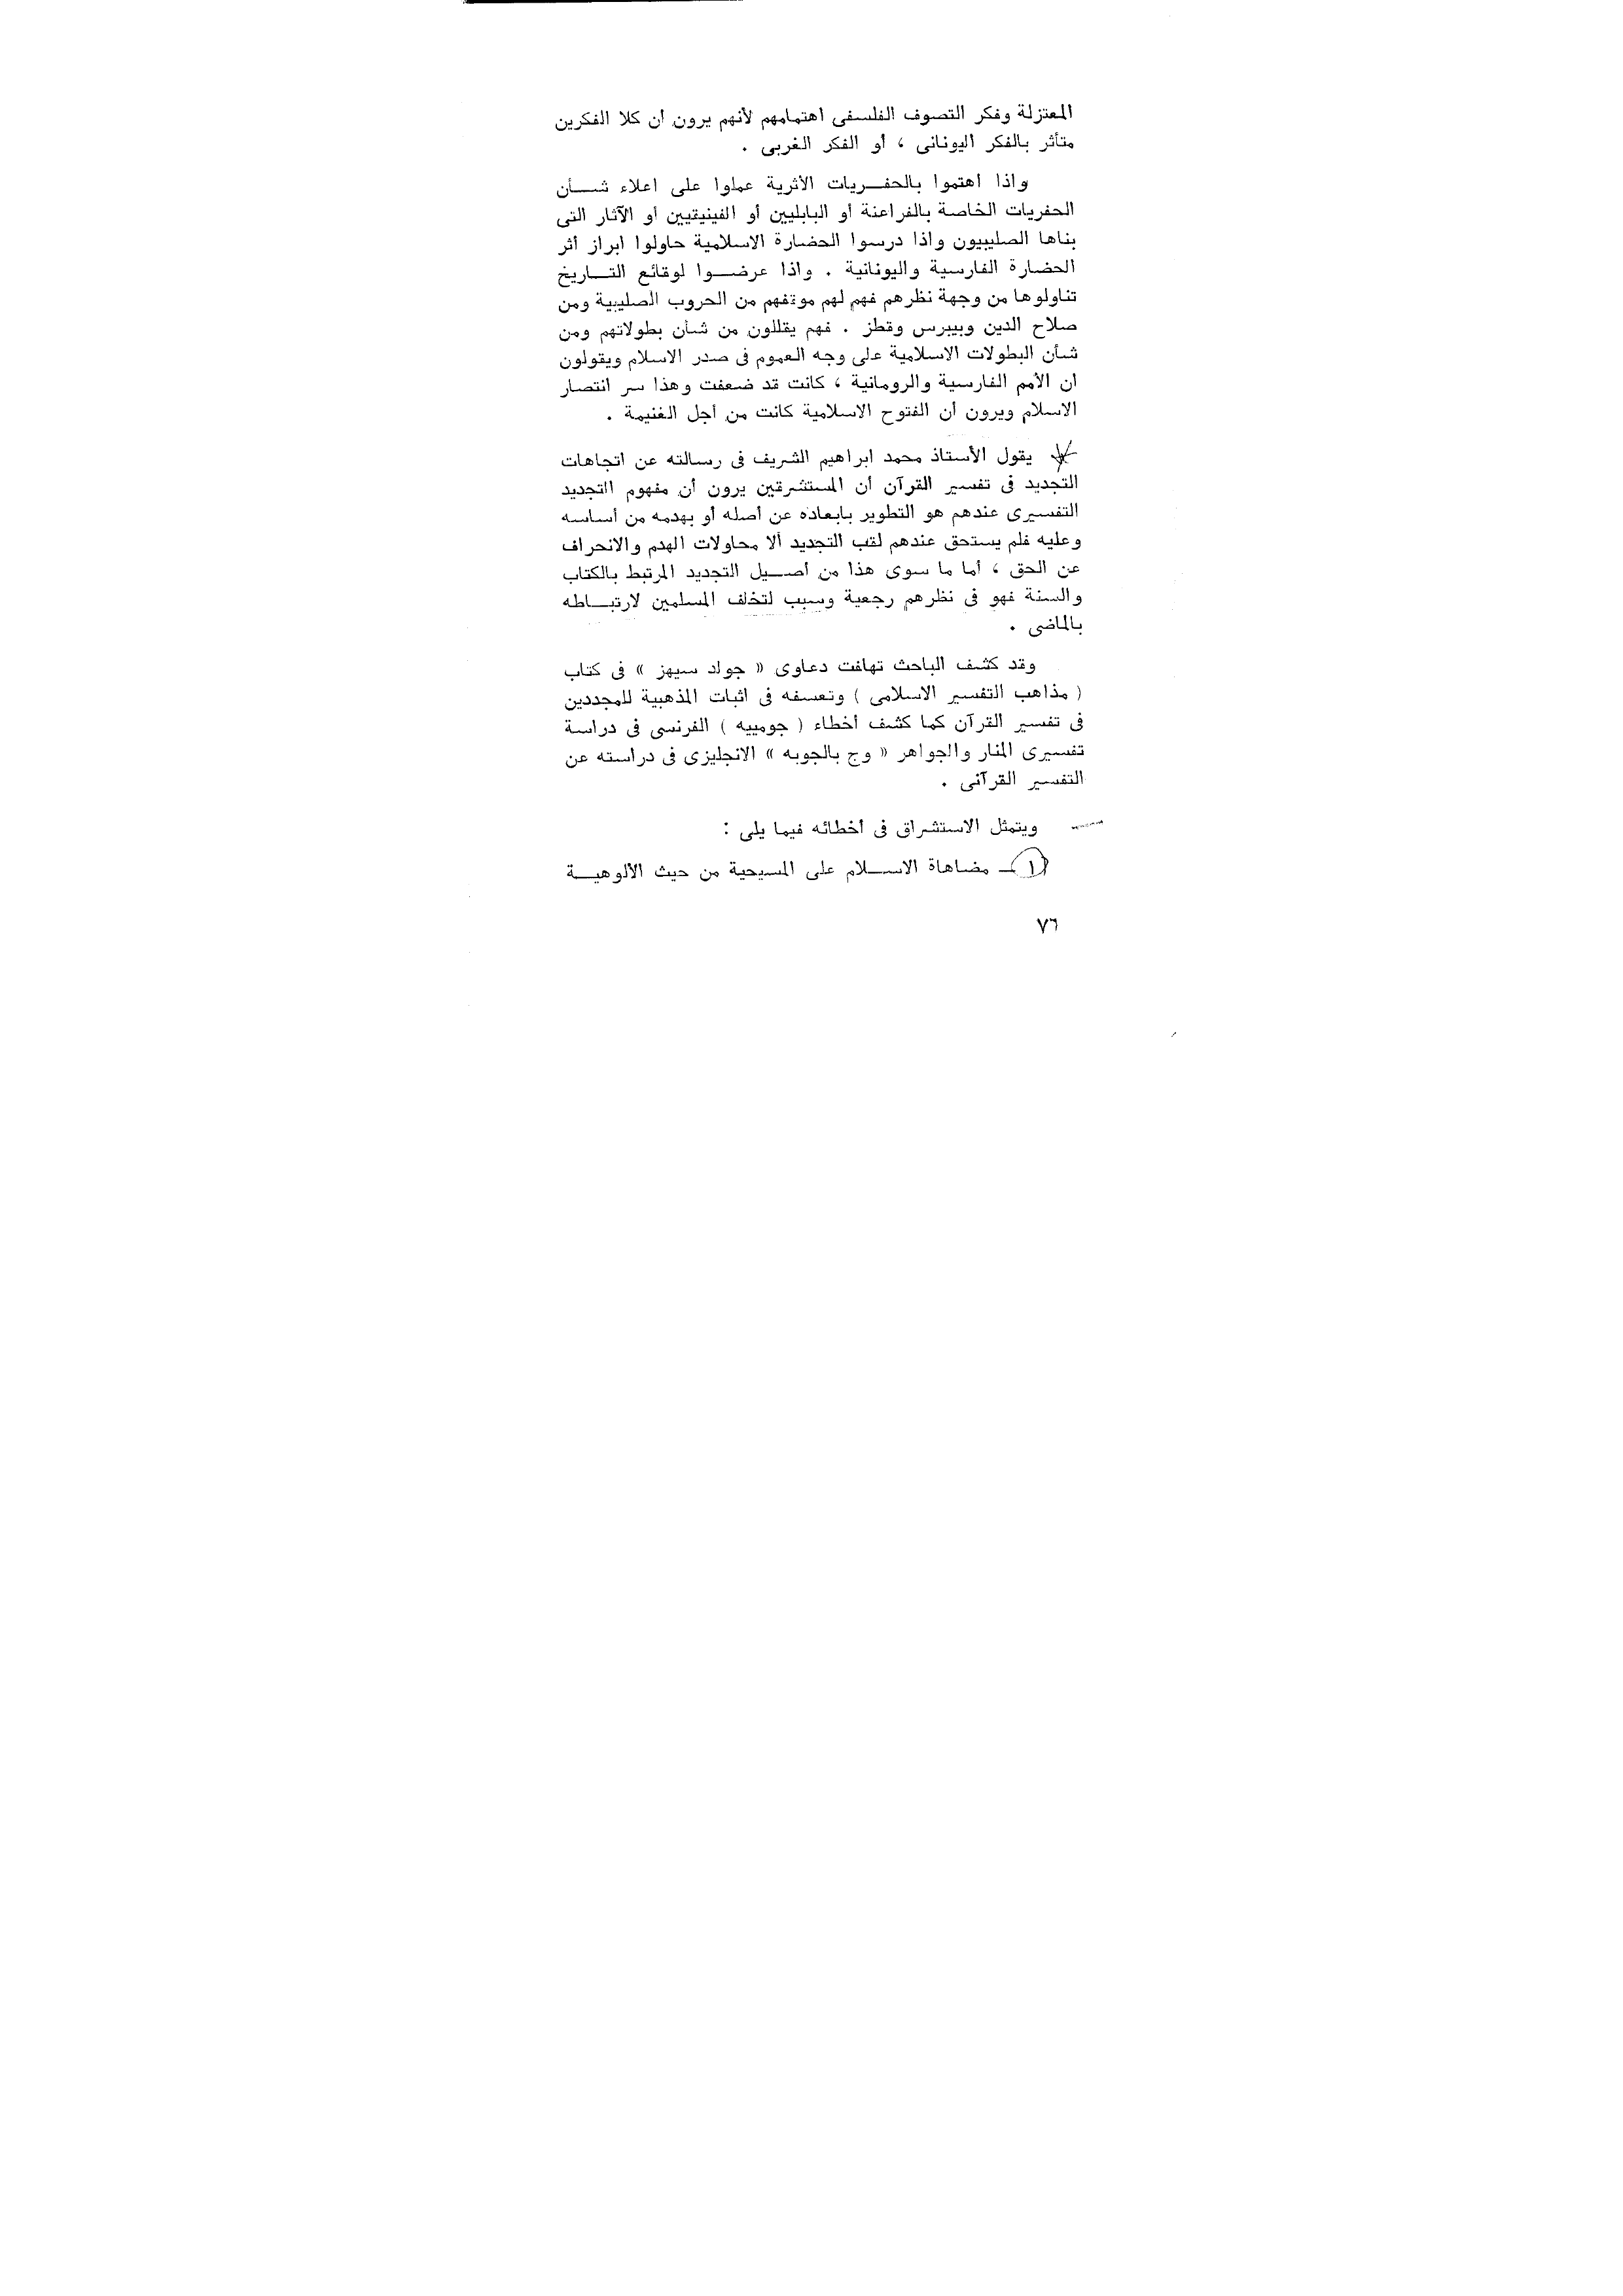 المعتزلة وفكر التصوف الفلسفى اهتمامهم لأنهم يرون ان كلا الفكرين
متأثر بالفكر اليونانى ، أو الفكر الغربى .
واذا اهتموا بالحفـــريات الأثرية عملوا على اعلاء شـــأن
الحفريات الخاصة بالفراعنة أو البابليين أو الفينيقيين أو الآثار التى
بناها الصليبيون واذا درسوا الحضارة الاسلامية حاولوا ابراز أثر
الحضارة الفارسية واليونانية . واذا عرضـــوا لوقائع التـــاريخ
تناولوها من وجهة نظرهم فهم لهم موقفهم من الحروب الصليبية ومن
صلاح الدين وبيبرس وقطز . فهم يقللون من شأن بطولاتهم ومن
شأن البطولات الاسلامية على وجه العموم فى صدر الاسلام ويقولون
ان الأمم الفارسية والرومانية ، كانت قد ضعفت وهذا سر انتصار
الاسلام ويرون أن الفتوح الاسلامية كانت من أجل الغنيمة .
يقول الأستاذ محمد ابراهيم الشريف فى رسالته عن اتجاهات
التجديد فى تفسير القرآن أن المستشرقين يرون أن مفهوم التجديد
التفسيرى عندهم هو التطوير بابعاده عن أصله أو بهدمه من أساسه
وعليه فلم يستحق عندهم لقب التجديد ألا محاولات الهدم والانحراف
عن الحق ، أما ما سوى هذا من أصـــيل التجديد المرتبط بالكتاب
والسنة فهو فى نظرهم رجعية وسبب لتخلف المسلمين لارتبـــاطه
بالماضى .
وقد كشف الباحث تهافت دعاوى « جولد سيهز » فى كتاب
( مذاهب التفسير الاسلامى ) وتعسفه فى اثبات المذهبية للمجددين
فى تفسير القرآن كما كشف أخطاء ( جومييه ) الفرنسى فى دراسة
تفسيرى المنار والجواهر « وج بالجوبه » الانجليزى فى دراسته عن
التفسير القرآنى .
ويتمثل الاستشراق فى أخطائه فيما يلى :
١ ـ مضاهاة الاســـلام على المسيحية من حيث الألوهيـــة
٧٦